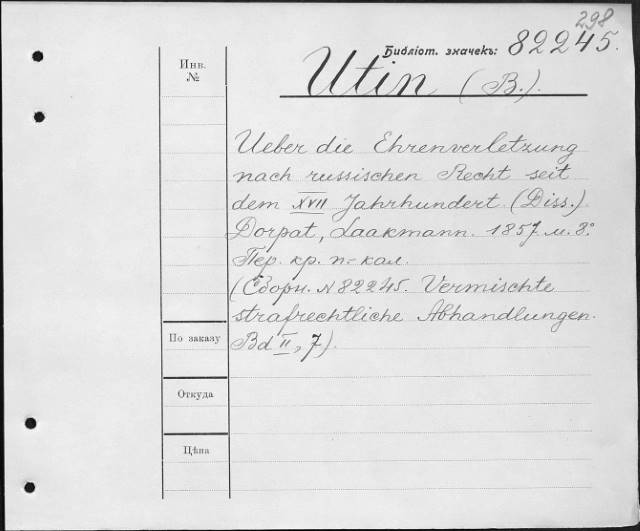 298
Библіот. значекъ: 82245.
Инв.
№
Utin (B.).
Ueber die Ehrenverletzung
nach russischen Recht seit
dem XVII Jahrhundert. (Diss.).
Dorpat, Laakmann. 1857. м. 8°.
Пер. кр. п.-кал.
(Сборн. N 82245. Vermischte
strafrechtliche Abhandlungen.
По заказу
Bd II, 7).
Откуда
Цѣна